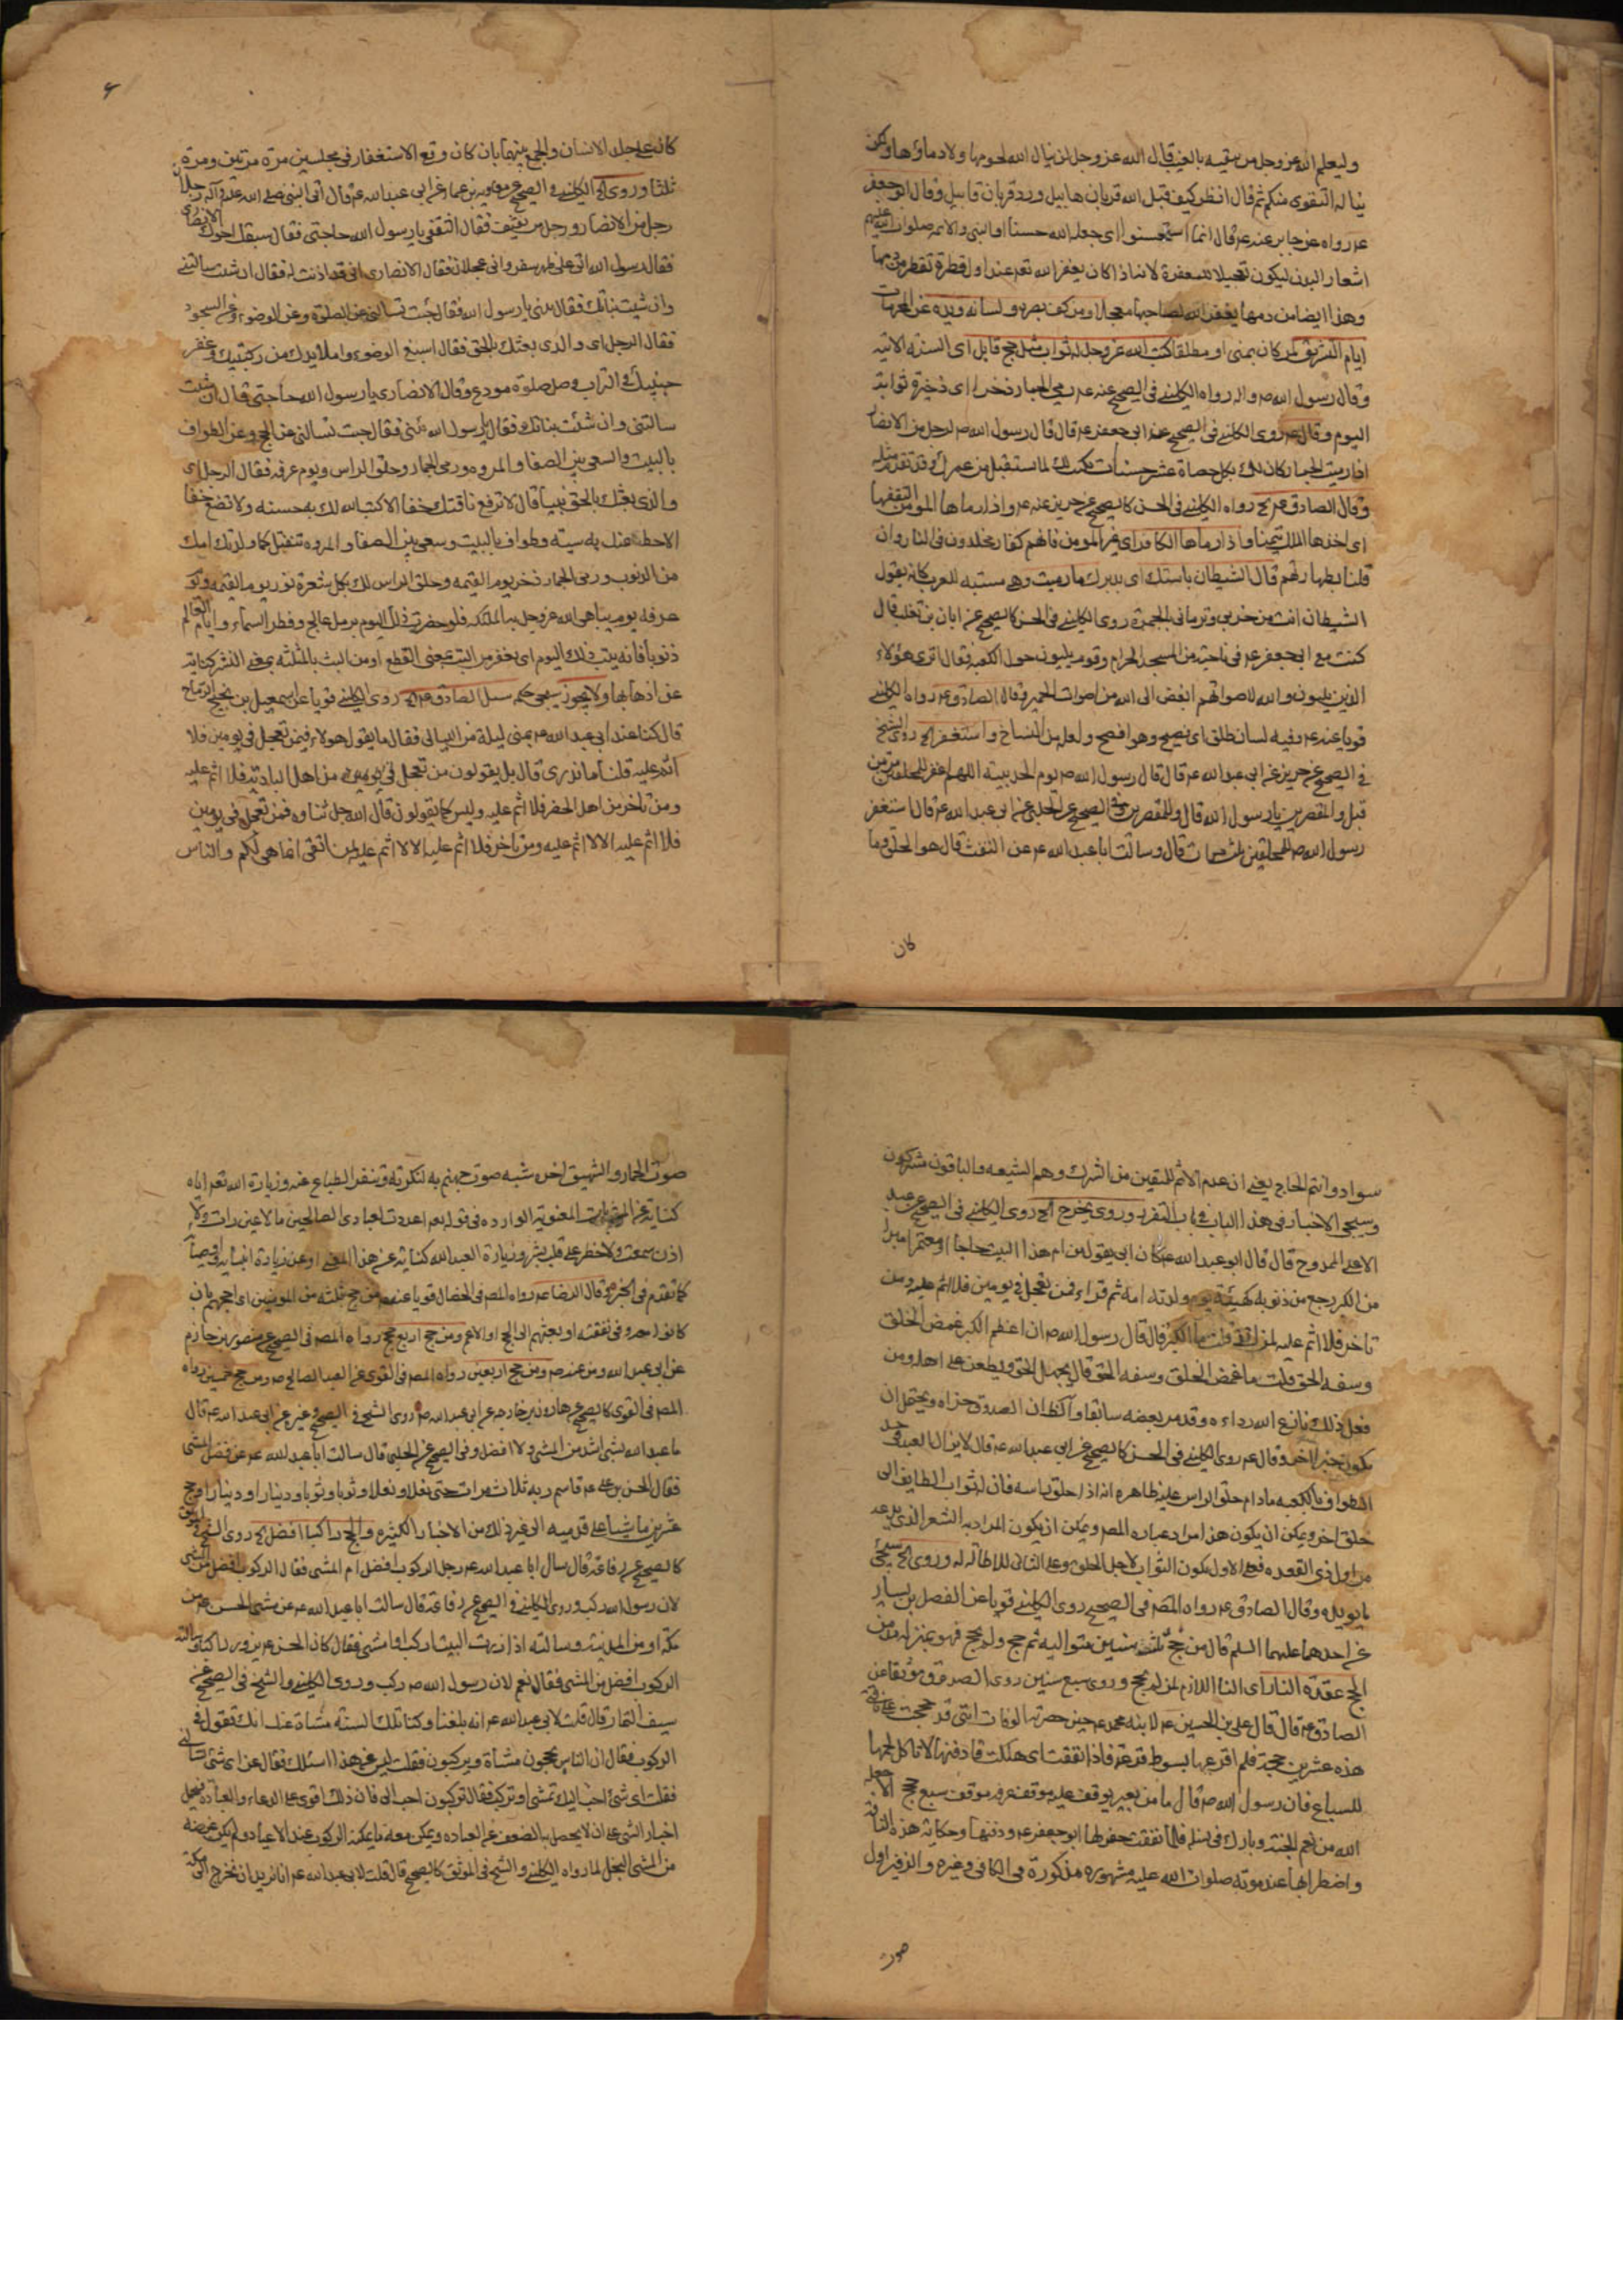 وليعلم الله عز وجل من يتقيه بالغيب قال الله عز وجل لن ينال الله لحومها ولا دماؤها ولكن
يناله التقوى منكم ثم قال انظر كيف قبل الله قربان هابيل ورد قربان قابيل وقال ابو جعفر
عم رواه عن جابر عنه عم قال انما استحسنوا اى جعله الله حسنا او النبى والائمه صلوات الله عليهم
اشعار البدن ليكون تعجيلا للمغفرة لانه اذا كان يغفر الله تعم عند اول قطرة تقطر من دمها
وهذا ايضا من دمها يغفر الله لصاحبها معجلا ومن كف بصره ولسانه ويده عن المحرمات
ايام التشريق لمن كان بمنى او مطلقا كتب الله عز وجل له ثواب مثل حج قابل اى السنه الاتيه
وقال رسول الله ص واله رواه الكلينى فى الصحيح عنه عم رمى الجمار ذخر اى ذخيرة ثوابه
اليوم وقال عم روى الكلينى فى الصحيح عن ابى جعفر عم قال قال رسول الله ص لرجل من الانصار
اذا رميت الجمار كان لك بكل حصاة عشر حسنات تكتب لك لما تستقبل من عمرك وقد تقدم مثله
وقال الصادق عم الخ رواه الكلينى فى الحسن كالصحيح عن حريز عنه عم واذا رماها المؤمن التقفها
اى اخذها الملك تيمنا واذا رماها الكافر اى غير المومن فانهم كفار مخلدون فى النار وان
قلنا بطهارتهم قال الشيطان باستك اى بدبرك ما رميت وهى مسبة للعرب كانه يقول
الشيطان انت من حزبى وترمانى بالجمرة روى الكلينى فى الحسن كالصحيح عن ابان بن تغلب قال
كنت مع ابى جعفر عم فى ناحية من المسجد الحرام وقوم يلبون حول الكعبه فقال اترى هؤلاء
الذين يلبون والله لاصواتهم ابغض الى الله من اصوات الحمير وقال الصادق عم رواه الكلينى
قويا عنه عم وفيه لسان طلق اى فصيح وهو افصح ولعله من النساخ واستغفر الخ روى الشيخ
فى الصحيح عن حريز عن ابى عبد الله عم قال قال رسول الله ص يوم الحديبيه اللهم اغفر للمحلقين مرتين
قيل والمقصرين يا رسول الله قال وللمقصرين وفى الصحيح عن الحلبى عن ابى عبد الله عم قال استغفر
رسول الله ص للمحلقين ثلث مرات قال وسالت ابا عبد الله عم عن التفث قال هو الحلق وما
كان
كان على جلد الانسان والجمع بينهما بان كان وقع الاستغفار فى مجلسين مرة مرتين ومرة
ثلثا وروى الخ الكلينى فى الصحيح عن معاويه بن عمار عن ابى عبد الله عم قال اتى النبى صلى الله عليه وآله رجلان
رجل من الانصار ورجل من ثقيف فقال الثقفى يا رسول الله حاجتى فقال سبقك اخوك الانصارى
فقال يا رسول الله انى على ظهر سفر وانى عجلان فقال الانصارى انى قد اذنت له فقال ان شئت سالتنى
وان شئت نباتك فقال نبئنى يا رسول الله فقال جئت تسالنى عن الصلوة وعن الوضوء وعن السجود
فقال الرجل اى والذى بعثك بالحق فقال اسبغ الوضوء واملأ يديك من ركبتيك وعفر
جبينيك فى التراب وصل صلوة مودع وقال الانصارى يا رسول الله حاجتى قال ان شئت
سالتنى وان شئت نباتك فقال يا رسول الله نبئنى فقال جئت تسالنى عن الحج وعن الطواف
بالبيت والسعى بين الصفا والمروه ورمى الجمار وحلق الراس ويوم عرفه فقال الرجل اى
والذى بعثك بالحق نبيا قال لا ترفع ناقتك خفا الا كتب الله لك به حسنه ولا تضع خفا
الا حط عنك به سيئه وطواف بالبيت وسعى بين الصفا والمروه تنفتل كما ولدتك امك
من الذنوب ورمى الجمار ذخر يوم القيمه وحلق الراس لك بكل شعرة نور يوم القيمه ويوم
عرفه يوم يباهى الله عز وجل به الملئكه فلو حضرت ذلك اليوم برمل عالج وقطر السماء وايام العالم
ذنوبا فانه يبت ذلك اليوم اى يغفر من البت بمعنى القطع او من البث بالمثلثه بمعنى النشر كناية
عن اذهابها ولا يجوز سيجى حكمه سئل الصادق عم الخ روى الكلينى قويا عن اسمعيل بن نجيح الرماح
قال كنا عند ابى عبد الله عم بمنى ليلة من الليالى فقال ما يقول هولاء فيمن تعجل فى يومين فلا
اثم عليه قلنا ما ندرى قال بل يقولون من تعجل فى يومين من اهل البادية فلا اثم عليه
ومن تاخر من اهل الحضر فلا اثم عليه وليس كما يقولون قال الله جل ثناوه فمن تعجل فى يومين
فلا اثم عليه الا لا اثم عليه ومن تاخر فلا اثم عليه الا لا اثم عليه لمن اتقى انما هى لكم والناس
سواد وانتم الحاج يعنى ان عدم الاثم للمتقين من الشرك وهم الشيعه والباقون مشركون
وسيجى الاخبار فى هذا الباب فى باب النفر وروى يخرج الخ روى الكلينى فى الصحيح عن عبد
الاعلى الممدوح قال قال ابو عبد الله عم كان ابى يقول من ام هذا البيت حاجا او معتمرا مبرأ
من الكبر رجع من ذنوبه كهيئة يوم ولدته امه ثم قراء فمن تعجل فى يومين فلا اثم عليه ومن
تاخر فلا اثم عليه لمن اتقى قلت ما الكبر قال قال رسول الله ص ان اعظم الكبر غمص الخلق
وسفه الحق قلت ما غمص الخلق وسفه الحق قال يجهل الحق ويطعن على اهله ومن
فعل ذلك نازع الله رداءه وقد مر بعضه سابقا و الصدوق جزاه ويحتمل ان
يكون وقال عم روى الكلينى فى الحسن كالصحيح عن ابى عبد الله عم قال لا يزال العبد فى حد
الطواف بالكعبه مادام حلق الراس عليه ظاهره انه اذا حلق راسه فان له ثواب الطايف الى
حلق اخر ويمكن ان يكون هذا مراد عباره المصم ويمكن ان يكون المراد به الشعر الذى
من اول ذى القعده فعلى الاول يكون الثواب لاجل الحلق وعلى الثانى للاطاله له وروى الخ سيجئ
ما يويده وقال الصادق عم رواه المصم فى الصحيح روى الكلينى قويا عن الفضل بن يسار
عن احدهما عليهما السلم قال من حج ثلث سنين متواليه ثم حج ولم يحج فهو بمنزلة مدمن
الحج عقدة النار اى النار اللازم لمن لم يحج وروى سبع سنين روى الصدوق موثقا عن
الصادق عم قال قال على بن الحسين عم لابنه محمد عم حين حضرته الوفات انى قد حججت على ناقتى
هذه عشرين حجة فلم اقرعها بسوط قرعة فاذا نفقت اى هلكت فادفنها لا تاكل لحمها
السباع فان رسول الله ص قال ما من بعير يوقف عليه موقف عرفه موقف سبع حجج الا جعله
الله من نعم الجنة وبارك فى نسله فلما نفقت حفر لها ابو جعفر عم ودفنها وحكاية هذه الناقة
واضطرابها عند موته صلوات الله عليه مشهوره مذكورة فى الكافى وغيره والزفير اول
صوت
صوت الحمار والشهيق اخره شبه صوت جهنم به لنكرته وتنفر الطباع عنه وزيارة الله تعم اياه
كناية عن المثوبات المعنويه الوارده فى قوله تعم اعددت لعبادى الصالحين ما لا عين رات ولا
اذن سمعت ولا خطر على قلب بشر وزيارة العبد الله كناية عن هذا المعنى او عن زيارة انبيائه
كما تقدم فى الخبر وقال الرضا عم رواه المصم فى الخصال قويا عنه عم من حج بثلثه من المومنين اى احجهم بان
كانوا معه وفى نفقته او بعثهم الى الحج او الاعم ومن حج اربع حجج رواه المصم فى الصحيح عن منصور بن حازم
عن ابى عبد الله ومن عنده ومن حج اربعين رواه المصم فى القوى عن العبد الصالح ص ومن حج خمسين رواه
المصم فى القوى كالصحيح عن هارون بن خارجه عن ابى عبد الله ص روى الشيخ فى الصحيح وغيره عن ابى عبد الله عم قال
ما عبد الله بشئ اشد من المشى ولا افضل وفى الصحيح عن الحلبى قال سالت ابا عبد الله عم عن فضل المشى
فقال الحسن بن على عم قاسم ربه ثلاث مرات حتى نعلا ونعلا وثوبا وثوبا ودينارا ودينارا وحج
عشرين ماشيا على قدميه الى غير ذلك من الاخبار الكثيره والحج راكبا افضل الخ روى الشيخ فى الموثق
كالصحيح عن رفاعة قال سال ابا عبد الله عم رجل الركوب افضل ام المشى فقال الركوب افضل من المشى
لان رسول الله ركب وروى الكلينى فى الصحيح عن رفاعة قال سالت ابا عبد الله عم عن مشى الحسن عم من
مكة او من المدينة وسالته اذا زرت البيت اركب او امشى فقال كان الحسن عم يزور راكبا وسالته
الركوب افضل من المشى فقال نعم لان رسول الله ص ركب وروى الكلينى والشيخ فى الصحيح عن
سيف التمار قال قلت لابى عبد الله عم انه بلغنا وكنا تلك السنه مشاة عنك انك تقول فى
الركوب فقال ان الناس يحجون مشاة ويركبون فقلت ليس عن هذا اسئلك فقال عن اى شئ تسالنى
فقلت اى شئ احب اليك تمشى او تركب فقال تركبون احب الى فان ذلك اقوى على الدعاء والعبادة فيحمل
اخبار المشى على ان لا يحصل به الضعف عن العباده ويمكن معه ما يمكنه الركوب عند الاعياء ولم يكن غرضه
من المشى البخل لما رواه الكلينى والشيخ فى الموثق كالصحيح قال قلت لابى عبد الله عم انا نريد ان نخرج الى مكة